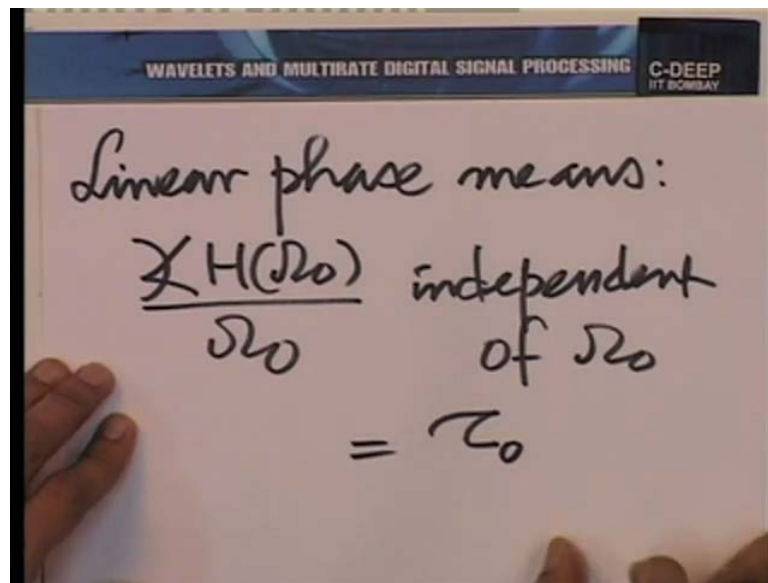 WAVELETS AND MULTIRATE DIGITAL SIGNAL PROCESSING
C-DEEP
IIT BOMBAY
Linear phase means:
∡H(Ω₀) independent
Ω₀ of Ω₀
= τ₀